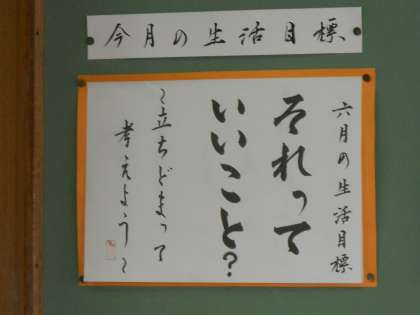 今月の生活目標
六月の生活目標
それって
いいこと?
〜立ちどまって
考えよう〜